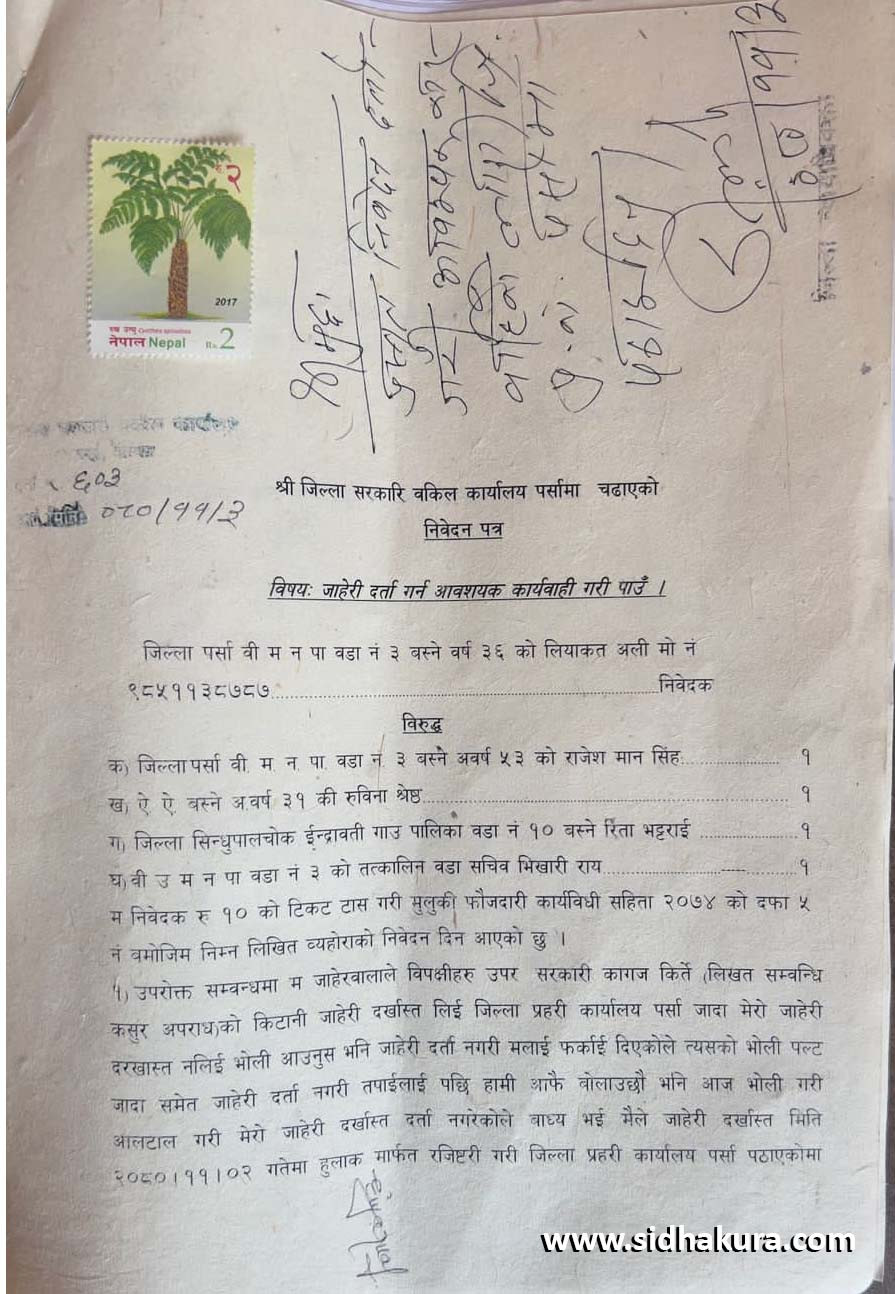 २
2017
रुख उन्यू Cyathea spinulosa
नेपाल Nepal Rs. 2
६०३
०८०/११/३
श्री जिल्ला सरकारि वकिल कार्यालय पर्सामा चढाएको
निवेदन पत्र
विषयः जाहेरी दर्ता गर्न आवशयक कार्यवाही गरी पाउँ ।
जिल्ला पर्सा वी म न पा वडा नं ३ बस्ने वर्ष ३६ को लियाकत अली मो नं
९८५११३८७८७.......................................................निवेदक
विरुद्ध
क) जिल्ला पर्सा वी. म. न. पा. वडा नं. ३ बस्ने अवर्ष ५३ को राजेश मान सिंह.................... १
ख) ऐ. ऐ. बस्ने अ.वर्ष ३१ की रुविना श्रेष्ठ............................................................... १
ग) जिल्ला सिन्धुपालचोक ईन्द्रावती गाउ पालिका वडा नं १० बस्ने रिता भट्टराई ....................१
घ) वी उ म न पा वडा नं ३ को तत्कालिन वडा सचिव भिखारी राय........................-----..........१
म निवेदक रु १० को टिकट टास गरी मुलुकी फौजदारी कार्यविधी सहिता २०७४ को दफा ५
नं बमोजिम निम्न लिखित व्यहोराको निवेदन दिन आएको छु ।
१) उपरोक्त सम्वन्धमा म जाहेरवालाले विपक्षीहरु उपर सरकारी कागज किर्ते (लिखत सम्वन्धि
कसुर अपराध)को किटानी जाहेरी दर्खास्त लिई जिल्ला प्रहरी कार्यालय पर्सा जादा मेरो जाहेरी
दरखास्त नलिई भोली आउनुस भनि जाहेरी दर्ता नगरी मलाई फर्काई दिएकोले त्यसको भोली पल्ट
जादा समेत जाहेरी दर्ता नगरी तपाईलाई पछि हामी आफै बोलाउछौ भनि आज भोली गरी
आलटाल गरी मेरो जाहेरी दर्खास्त दर्ता नगरेकोले वाध्य भई मैले जाहेरी दर्खास्त मिति
२०८०।११।०२ गतेमा हुलाक मार्फत रजिष्टरी गरी जिल्ला प्रहरी कार्यालय पर्सा पठाएकोमा
www.sidhakura.com